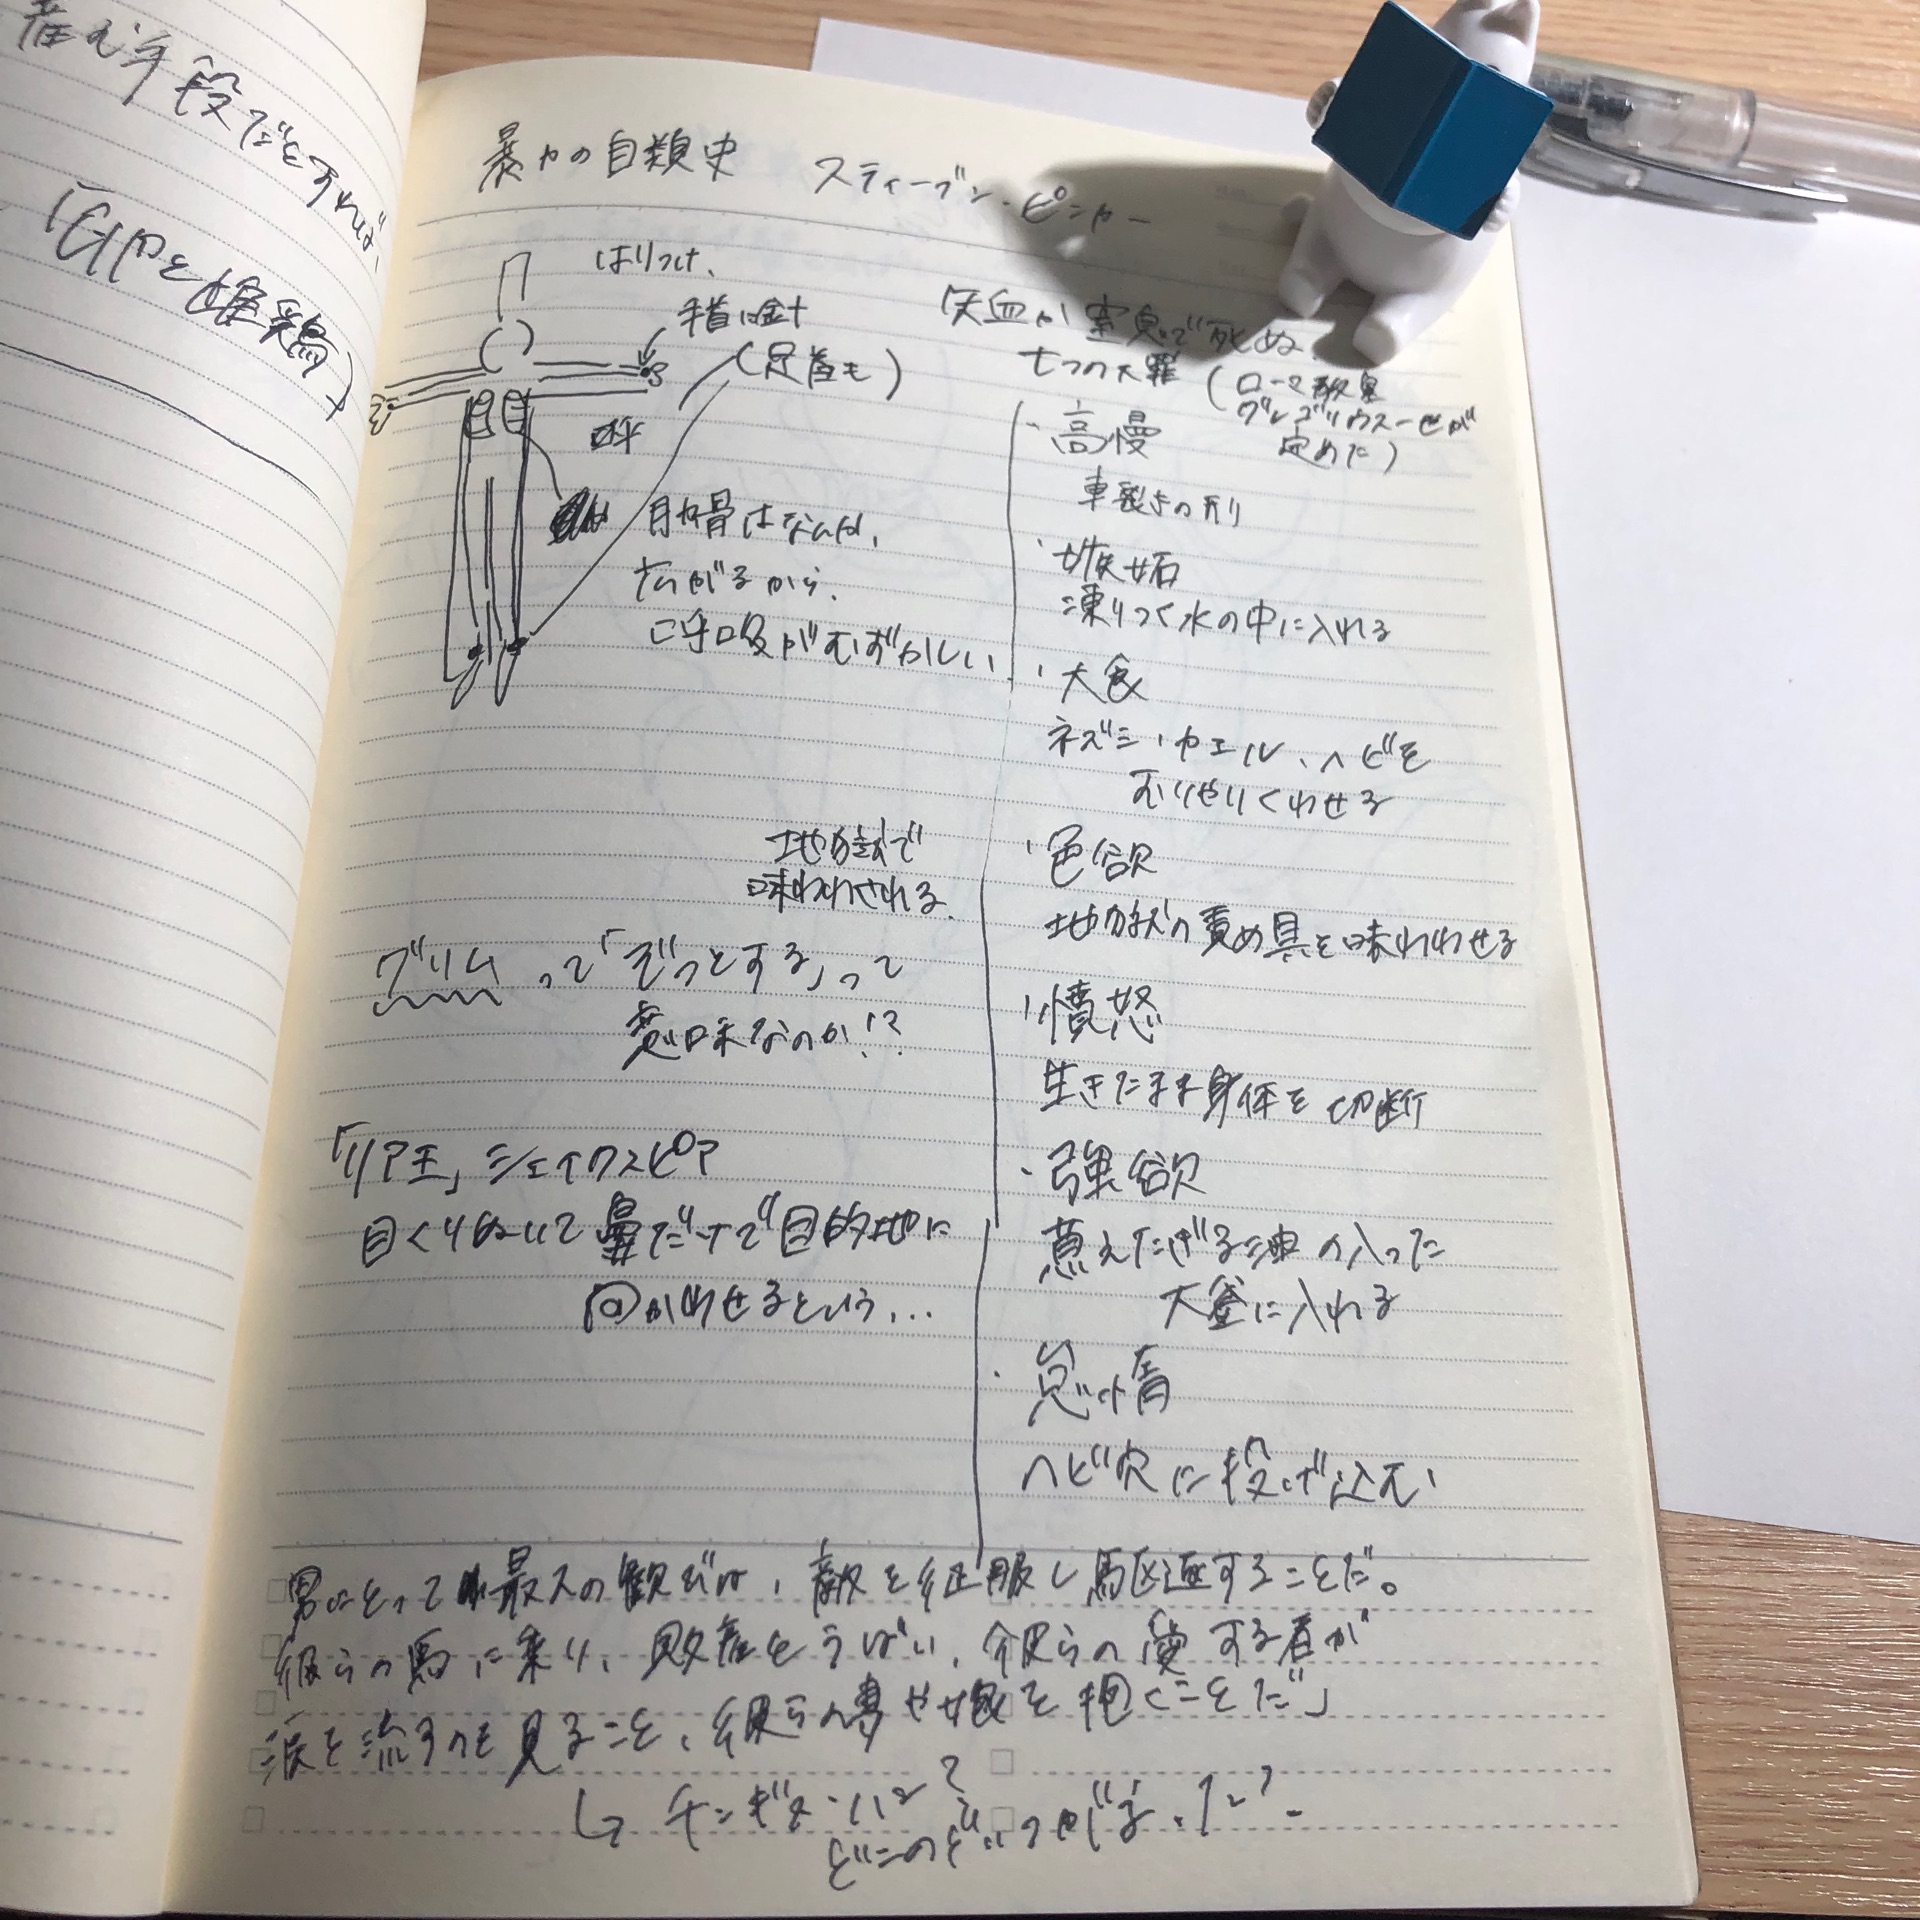 産む手段だとすれば、
と雌鶏)
暴力の自類史 スティーブン・ピンカー
はりつけ、
手首に釘
(足首も)
肩や骨はなんか、
広がるから、
呼吸がむずかしい
地獄で
味わわされる。
グリムって「ぞっとする」って
意味なのか!?
「リア王」シェイクスピア
目くりぬいて鼻だけで目的地に
向かわせるという...
失血か窒息で死ぬ。
七つの大罪(ローマ教皇
グレゴリウス一世が
定めた)
・高慢
車裂きの刑
・嫉妬
凍りつく水の中に入れる
・大食
ネズミ・カエル、ヘビを
むりやりくわせる
・色欲
地獄の責め具を味わわせる
・憤怒
生きたまま身体を切断
・強欲
煮えたぎる油の入った
大釜に入れる
・怠惰
ヘビ穴に投げ込む
男にとって最大の歓びは、敵を征服し駆逐することだ。
彼らの馬に乗り、財産をうばい、彼らの愛する者が
涙を流すのを見ること、彼らの妻や娘を抱くことだ」
↳ チンギス・ハン?